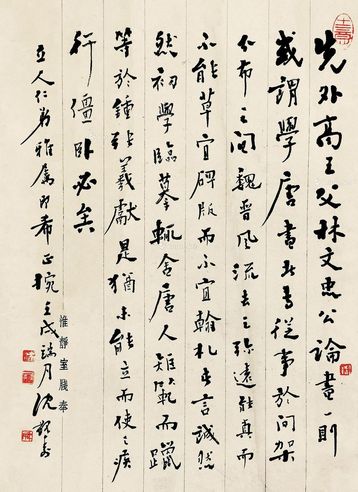 先外高王父林文忠公論書一則
或謂學唐書者專從事於間架
分布之間魏晉風流去之弥遠能真而
不能草宜碑版而不宜翰札其言誠然
然初學臨摹輒舍唐人矩範而躐
等於鍾張羲獻是猶未能立而使之疾
行僵卧必矣
立人仁弟雅屬即希正腕 壬戌端月沈覲壽
惟靜室牋奉